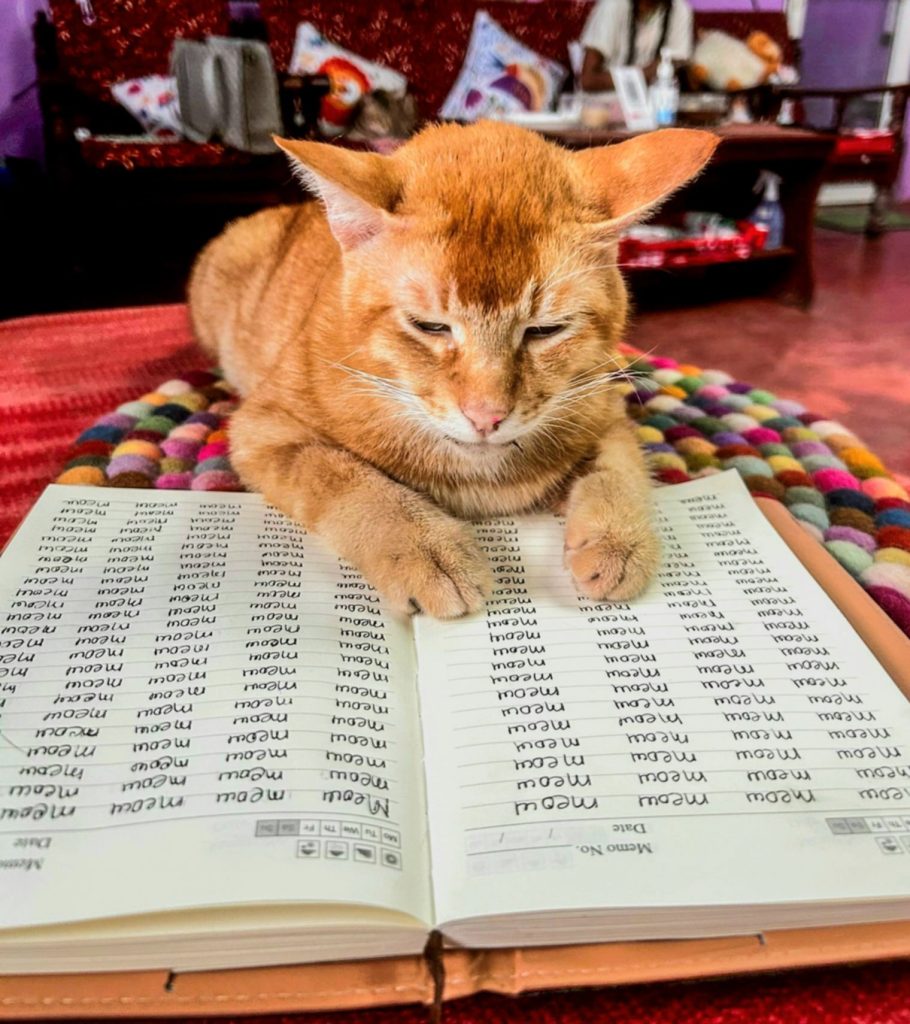 Th Fr Sa Su
Memo No.
Date
meow meow meow meow
meow meow meow meow
meow meow meow meow
meow meow meow meow
meow meow meow meow
meow meow meow meow
meow meow meow meow
meow meow meow meow
meow meow meow meow
meow meow meow meow
meow meow meow meow
meow meow meow meow
meow meow meow
meow meow meow
meow meow meow
meow meow
meow meow
meow meow
meow meow
meow meow
Mo Tu We Th Fr Sa Su
Memo
Date
Meow meow meow meow
meow meow meow meow
meow meow meow meow
meow meow meow meow
meow meow meow meow
meow meow meow meow
meow meow meow meow
meow meow meow meow
meow meow meow meow
meow meow meow meow meow
meow meow meow meow meow
meow meow meow meow meow
meow meow meow meow meow
meow meow meow meow
meow meow meow meow
meow meow meow meow
meow meow meow meow
meow meow meow meow
meow meow meow meow
meow meow meow meow
meow meow meow